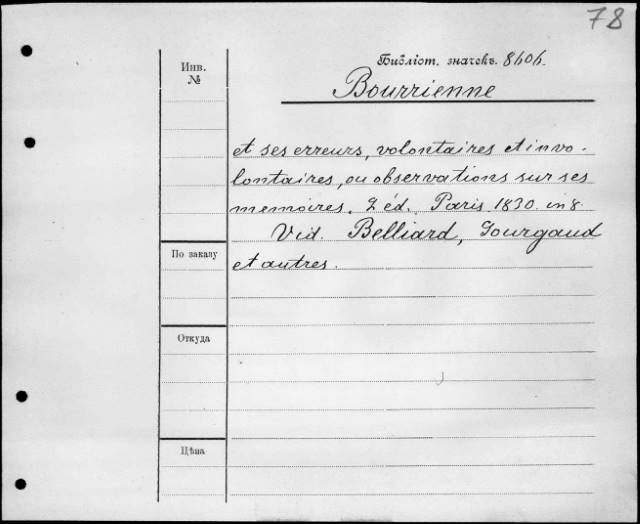 78
Инв.
№
Библіот. значекъ. 8606.
Bourrienne
et ses erreurs, volontaires et invo-
lontaires, ou observations sur ses
memoires. 2 éd. Paris 1830. in 8.
Vid. Belliard, Gourgaud
et autres.
По заказу
Откуда
Цѣна